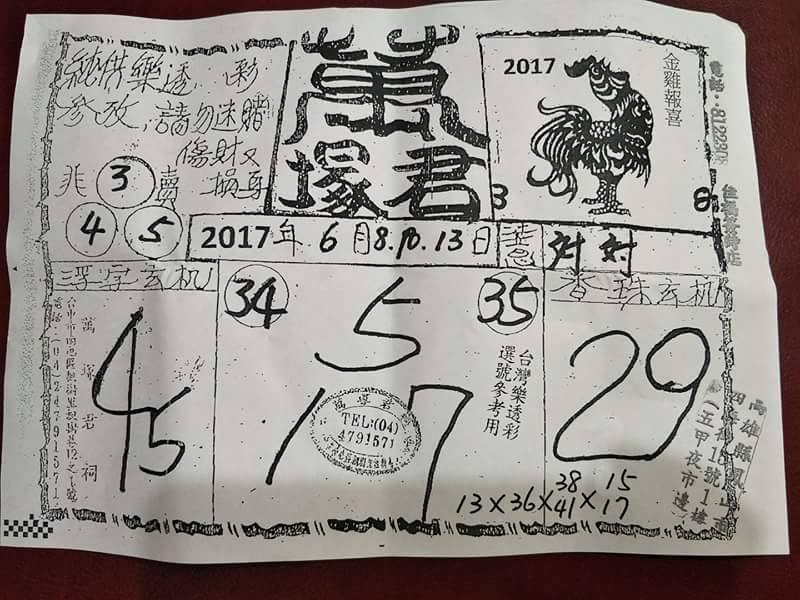 純供樂透彩
參改,請勿迷賭
傷財又
非 3 賣 損身
4 5
萬
塚君
2017
金雞報喜
2017年 6月8.10.13日
對對
浮字玄机
萬塚君祠
45
34 5 35
1 7
台灣樂透彩
選號參考用
TEL:(04)
4791571
香珠玄机
29
13×36×38 41×15 17
高雄縣鳳山市
(五甲夜市邊)